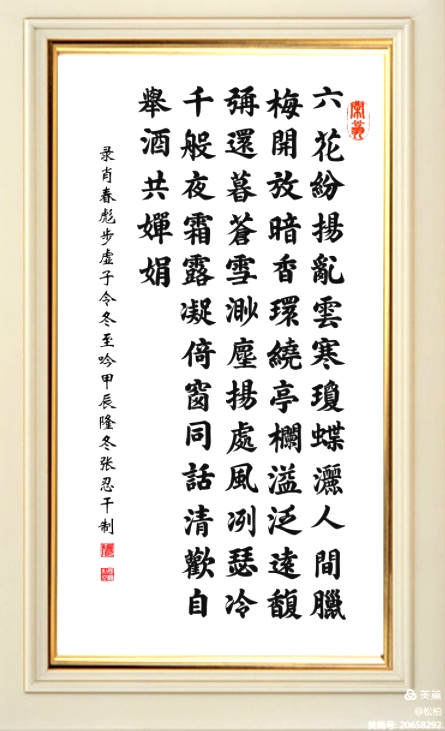 六花紛揚亂雲寒瓊蝶灑人間臘
梅開放暗香環繞亭欄溢泛遠馥
彌還暮蒼雪渺塵揚處風冽瑟冷
千般夜霜露凝倚窗同話清歡自
舉酒共嬋娟
录肖春彪步虚子令冬至吟甲辰隆冬张忍干制
美篇
@松柏
美篇号: 20658292